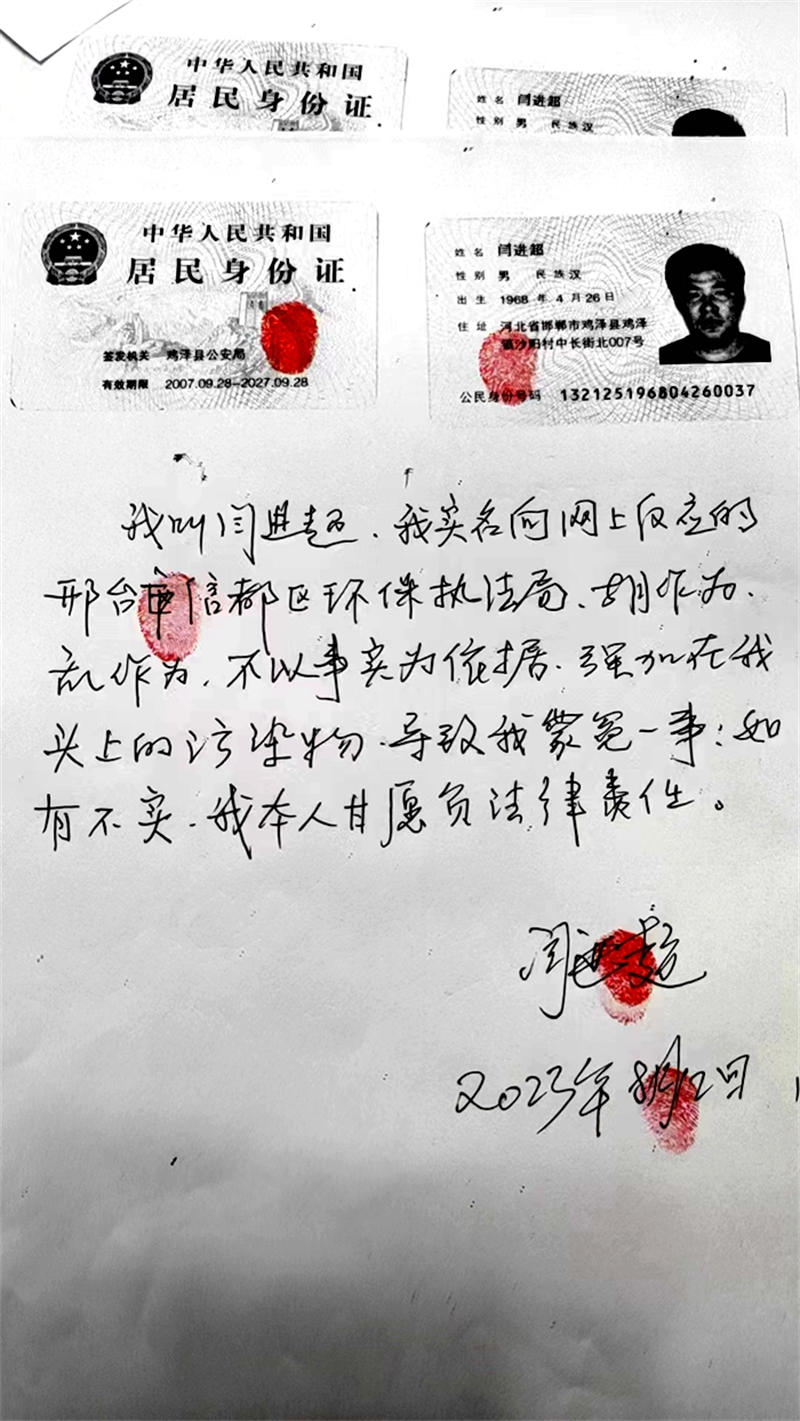 中华人民共和国
居民身份证
姓名 闫进超
性别 男 民族汉
中华人民共和国
居民身份证
签发机关 鸡泽县公安局
有效期限 2007.09.28-2027.09.28
姓名 闫进超
性别 男 民族汉
出生 1968 年 4 月 26 日
住址 河北省邯郸市鸡泽县鸡泽
镇沙阳村中长街北007号
公民身份号码 132125196804260037
我叫闫进超、我实名向网上反应的
邢台市信都区环保执法局、胡作为、
乱作为、不以事实为依据、强加在我
头上的污染物、导致我蒙冤一事；如
有不实、我本人甘愿负法律责任。
闫进超
2023年8月12日